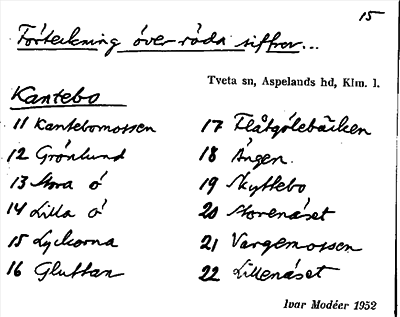 15
Förteckning över röda siffror...
Tveta sn, Aspelands hd, Klm. l.
Kantebo
11 Kantebomossen
12 Grönlund
13 Stora ö
14 Lilla ö
15 Lyckorna
16 Gluttan
17 Flåtgölebäcken
18 Ängen.
19 Skyttebo
20 Storenäset
21 Vargemossen
22 Lillenäset
Ivar Modéer 1952